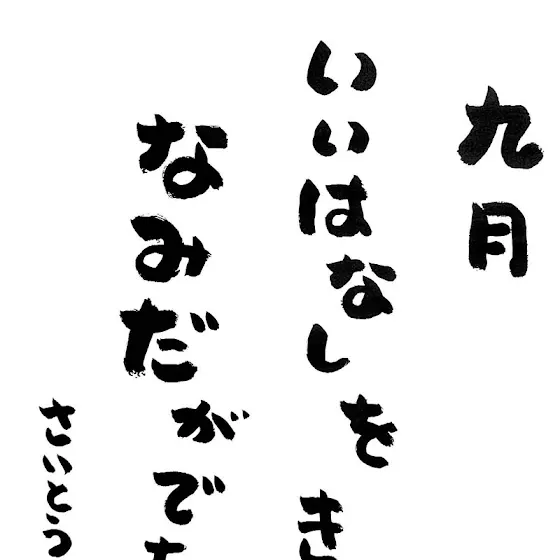 九月
いいはなしをき
なみだがで
さいとう